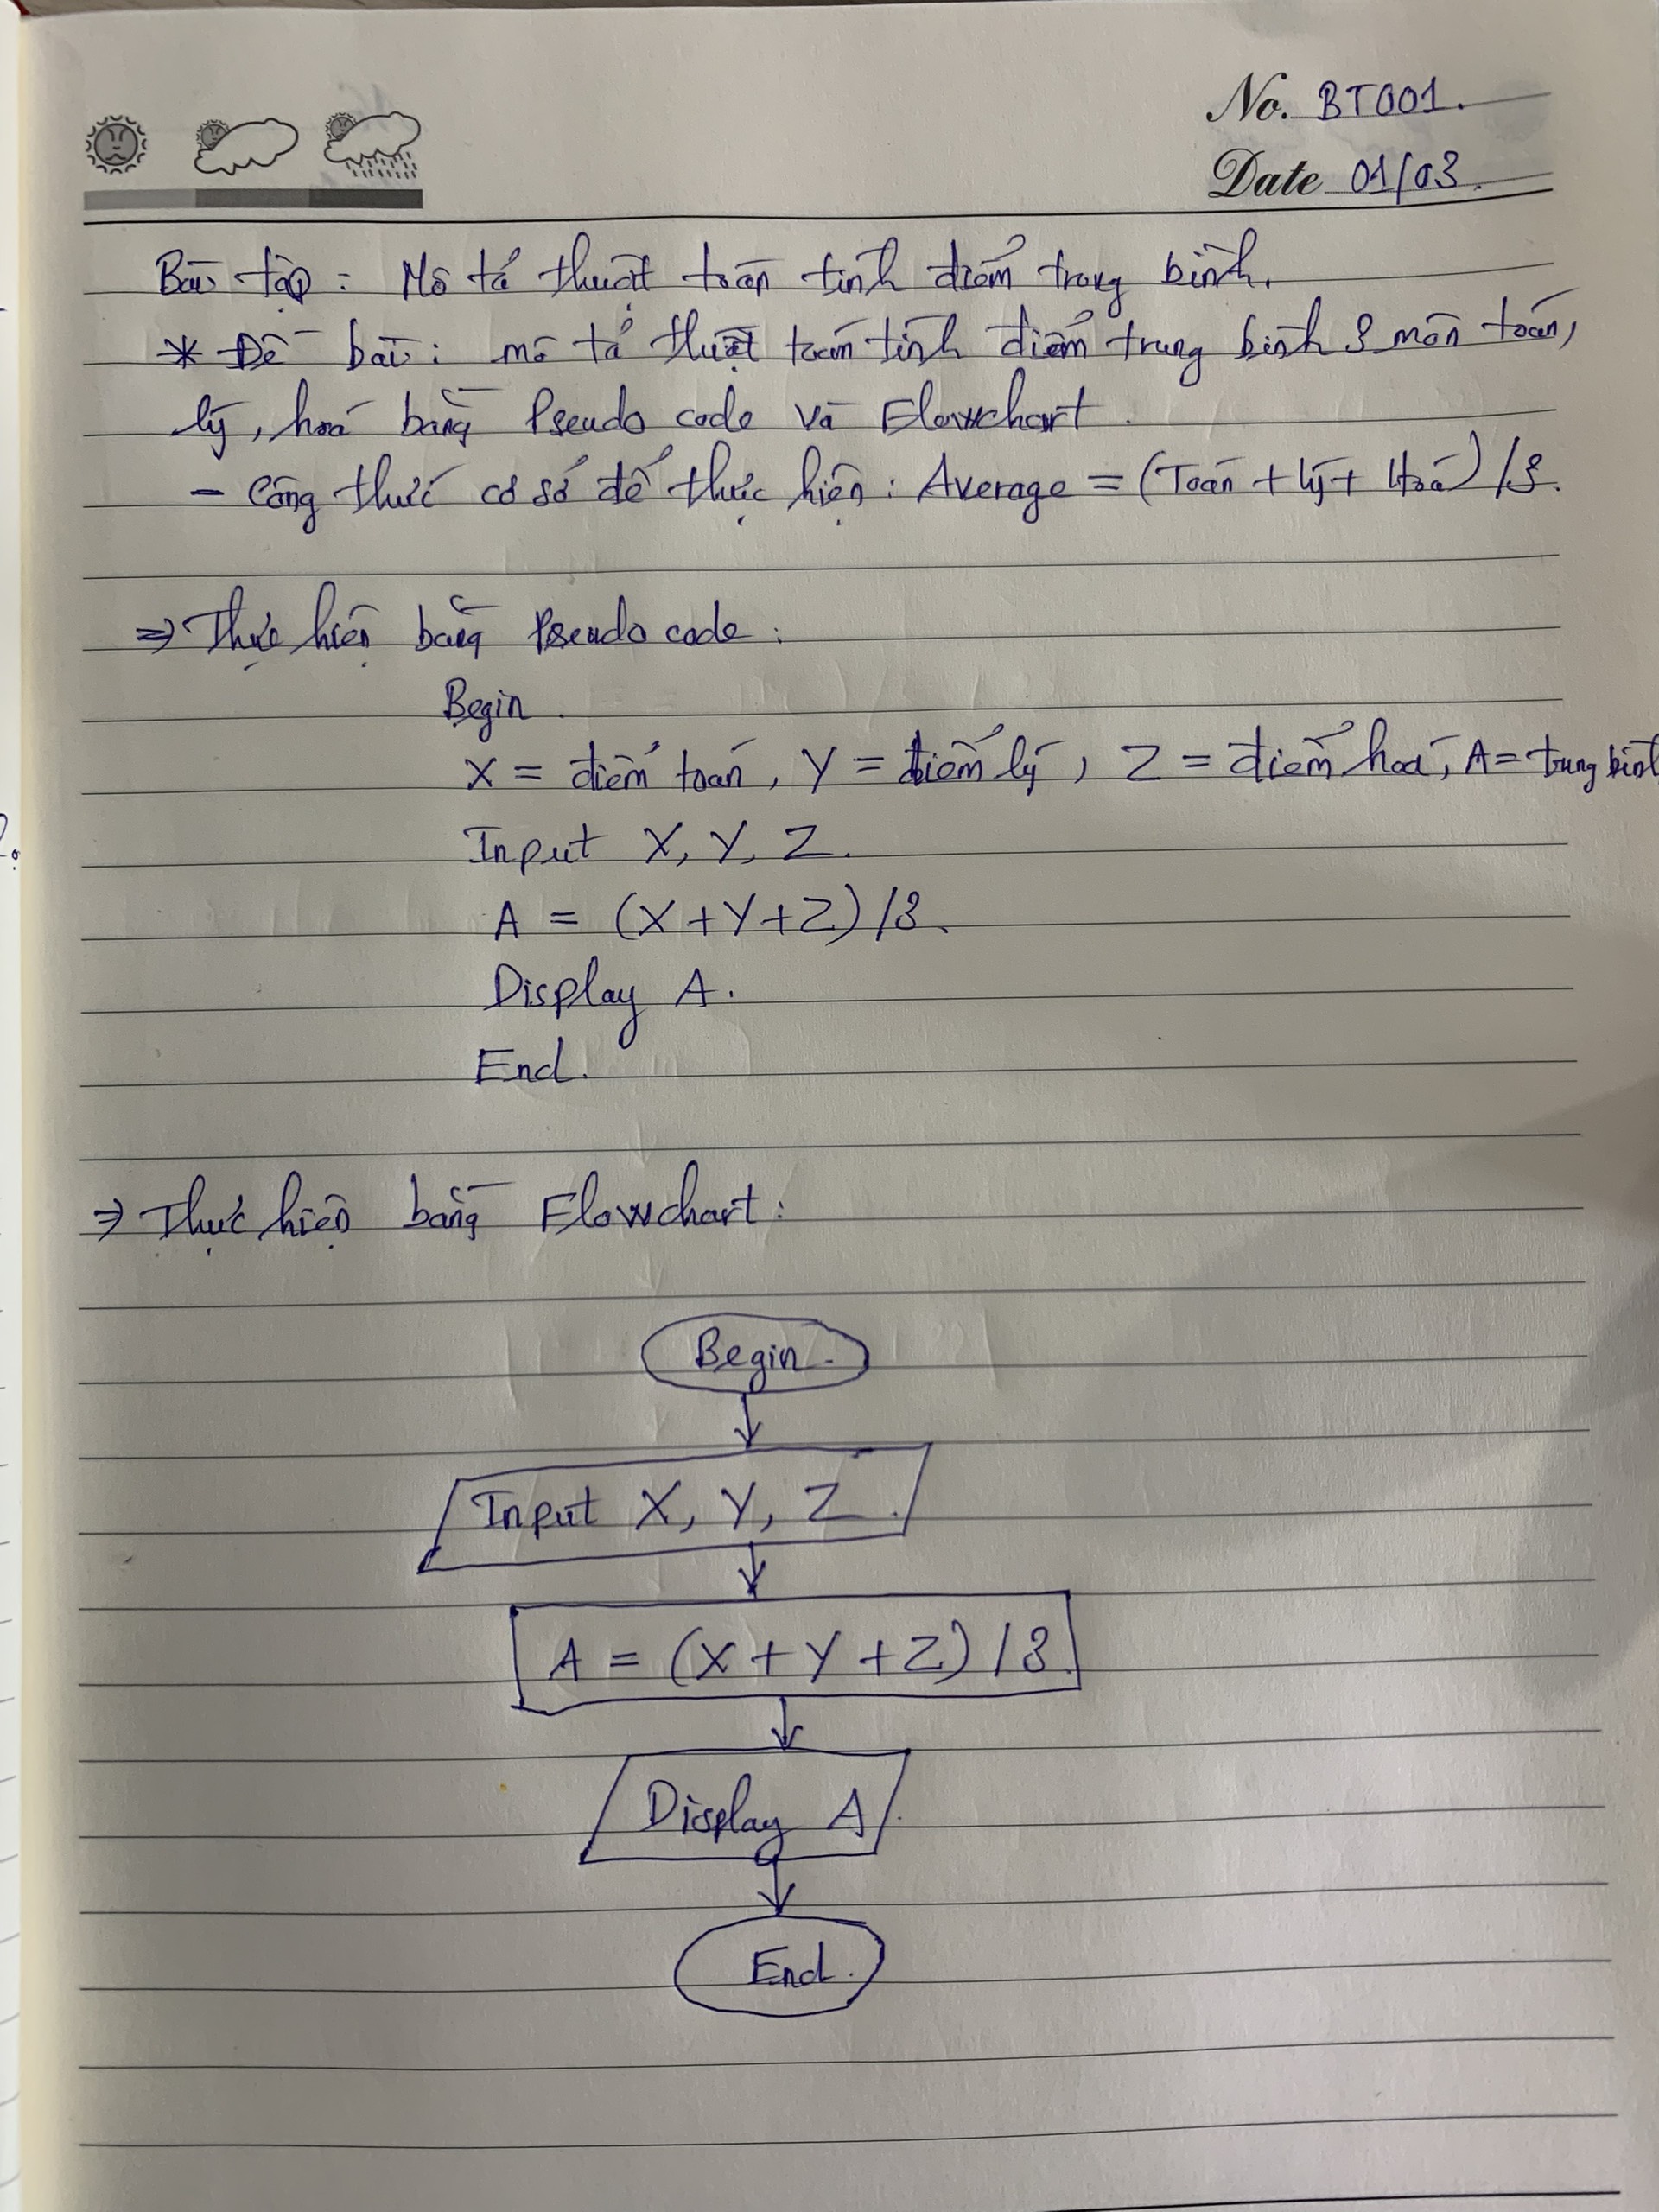 No. BT001.
Date 01/03.
Bài tập: Mô tả thuật toán tính điểm trung bình.
* Đề bài: mô tả thuật toán tính điểm trung bình 3 môn toán,
lý, hoá bằng Pseudo code và Flowchart.
- Công thức cơ sở để thực hiện: Average = (Toán + lý + Hoá) /3.
⇒ Thực hiện bằng Pseudo code:
Begin.
X = điểm toán, Y = điểm lý, Z = điểm hoá, A = trung bình
Input X, Y, Z.
A = (X+Y+Z)/3.
Display A.
End.
⇒ Thực hiện bằng Flowchart:
Begin.
Input X, Y, Z.
A = (X+Y+Z)/3.
Display A.
End.